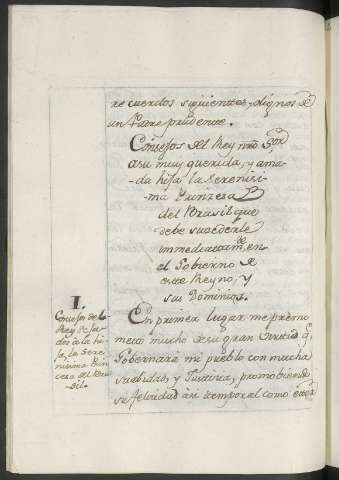 recuerdos siguientes, dignos de
un Padre prudente.
Consejos del Rey nrõ Sor
a su muy querida, y ama-
-da hija la Serenisi-
ma Princesa
del Brasil que
debe succederle
immediatamte en
el Govierno de
este Reyno, y
sus Dominios.
I.
Consejos del
Rey
dos a la hi-
ja, la Sere-
nisima Prin-
cesa del Bra-
sil.
En primer lugar me pro
meto mucho de su gran Virtud q.
Governará mi pueblo con mucha
suabidad, y Justicia, promobiendo
su felicidad asi temporal como eter